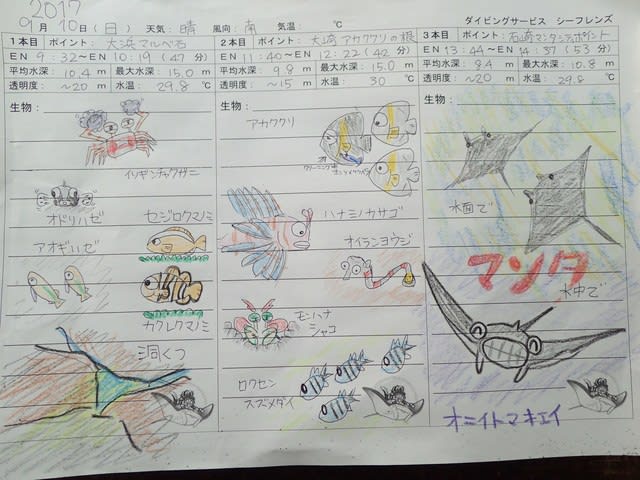 2017
9月10日(日) 天気:晴 風向:南 気温: ℃ ダイビングサービス シーフレンズ
1本目 ポイント: 大浜マルベ石
EN 9:32〜EN 10:19 (47分)
平均水深: 10.4 m 最大水深: 15.0 m
透明度: 〜20 m 水温: 29.8 ℃
生物:
イソギンチャクガニ
オドリハゼ
セジロクマノミ
アオギハゼ
カクレクマノミ
洞くつ
2本目 ポイント: 大崎アカククリの根
EN 11:40〜EN 12:22 (42分)
平均水深: 9.8 m 最大水深: 15.0 m
透明度: 〜15 m 水温: 30 ℃
生物:
アカククリ
ハナミノカサゴ
オイランヨウジ
モンハナ
シャコ
ロクセン
スズメダイ
3本目 ポイント: 石崎マンタシティポイント
EN 13:44〜EN 14:37 (53分)
平均水深: 8.4 m 最大水深: 10.8 m
透明度: 〜20 m 水温: 29.8 ℃
生物:
水面で
マンタ
水中で
オニイトマキエイ